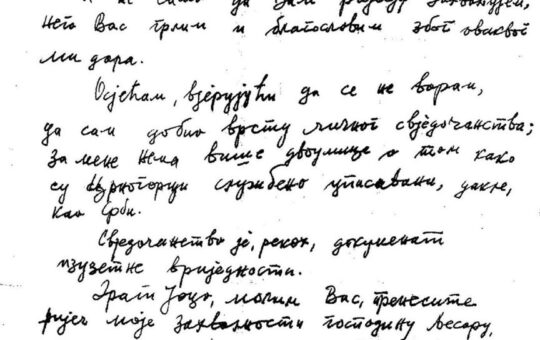 да Вам
него Вас грлим и благословим због оваквог
ми дара.
Осјећам, вјерујући да се не варам,
да сам добио врсту личног свједочанства;
за мене нема више двоумице о том како
су Црногорци службено уписавани, дакле,
као Срби.
Свједочанство је, рекох, документ
изузетне вриједности.
Драги Јоцо, молим Вас, пренесите
ријеч моје захвалности господину